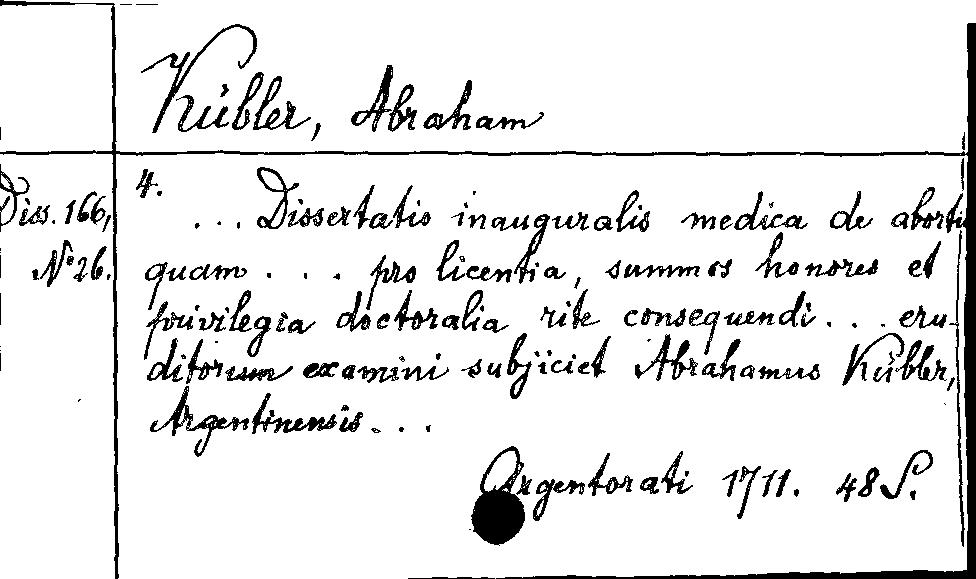 Kübler, Abraham
Diss. 166,
No 26.
4.
... Dissertatio inauguralis medica de abortu
quam ... pro licentia, summos honores et
privilegia doctoralia rite consequendi ... eru-
ditorum examini subjiciet Abrahamus Kübler,
Argentinensis ...
Argentorati 1711. 48 S.